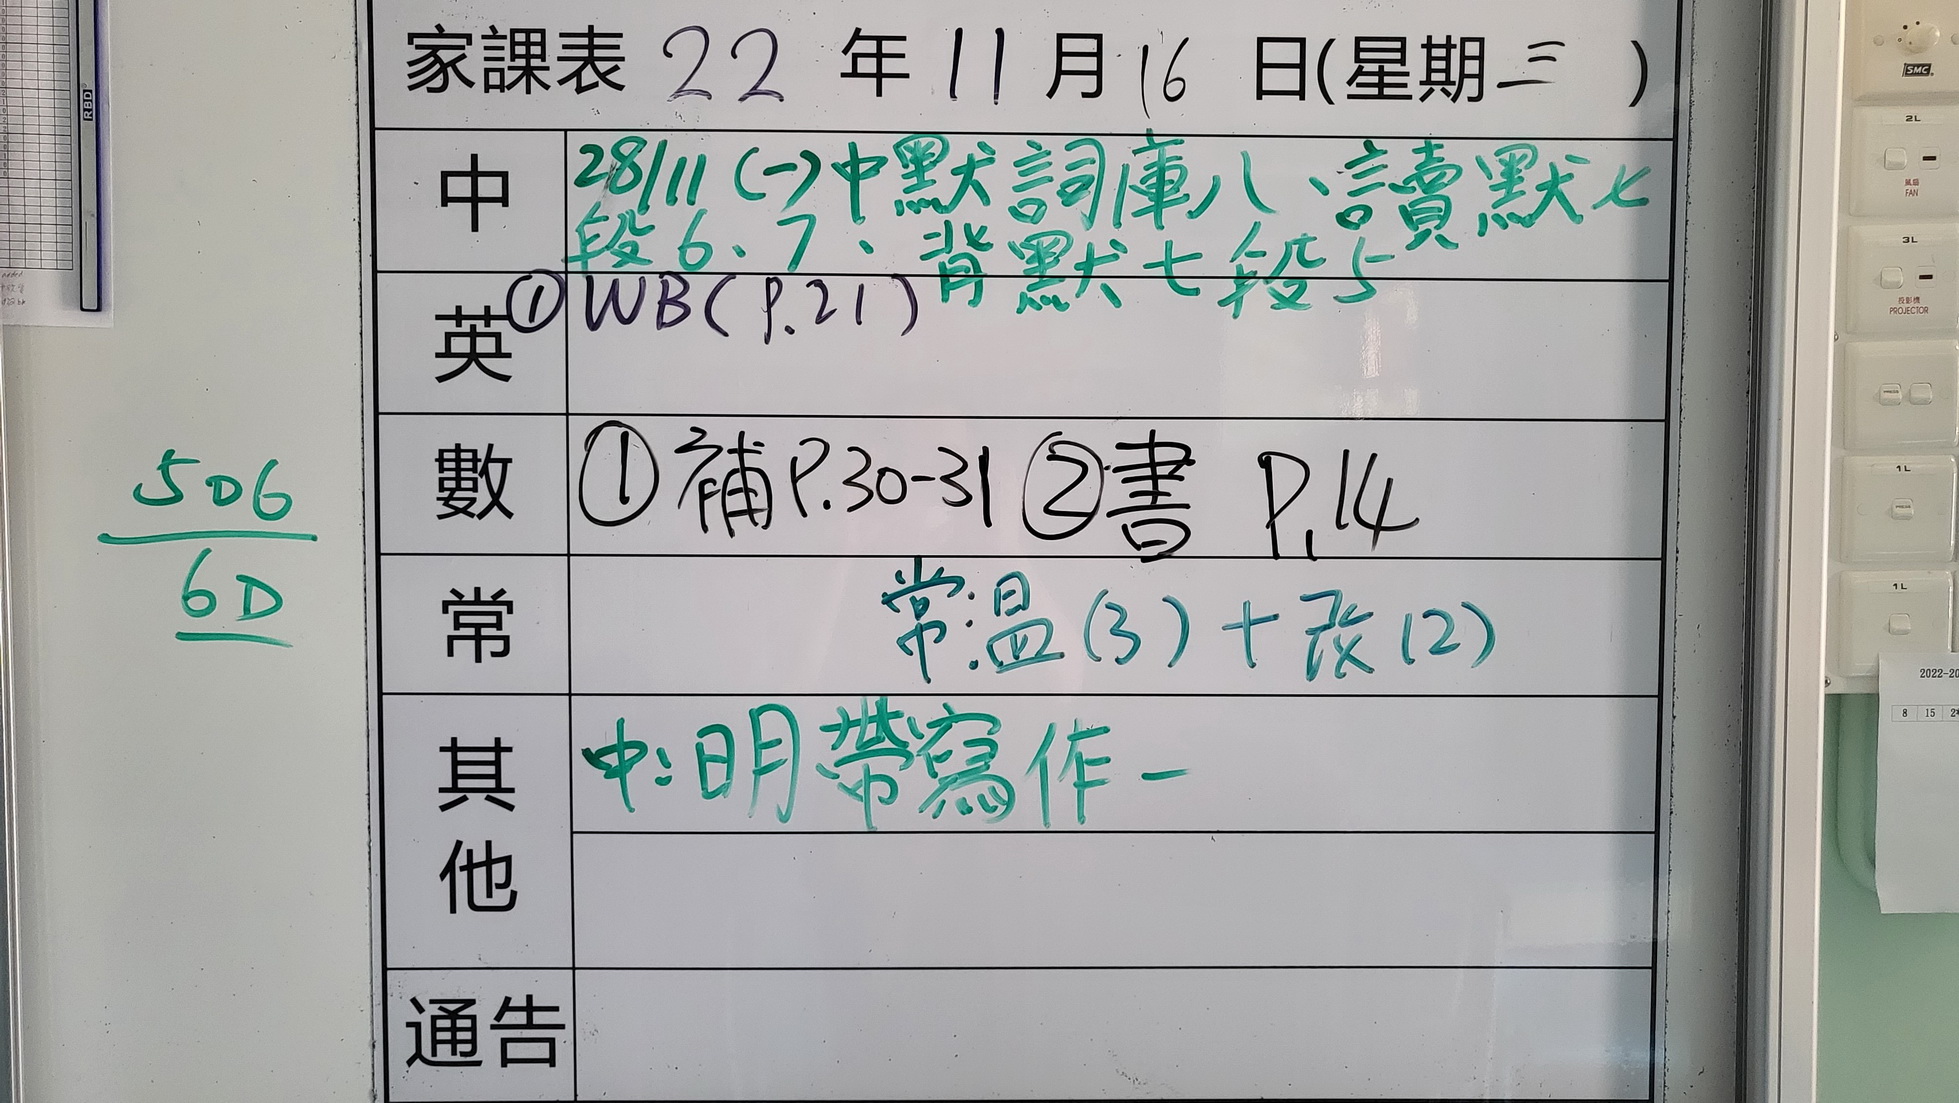 家課表 22 年 11 月 16 日(星期三)
中
28/11 (一)中默詞庫八、讀默七
段6、7、背默七段5
英
①WB(P.21)
數
①補P.30-31 ②書 P.14
常
常:温(3)+改(2)
其他
中:明帶寫作一
通告
506
6D
RBD
SMC
2L
風扇
FAN
3L
投影機
PROJECTOR
1L
1L
2022-20
8 15